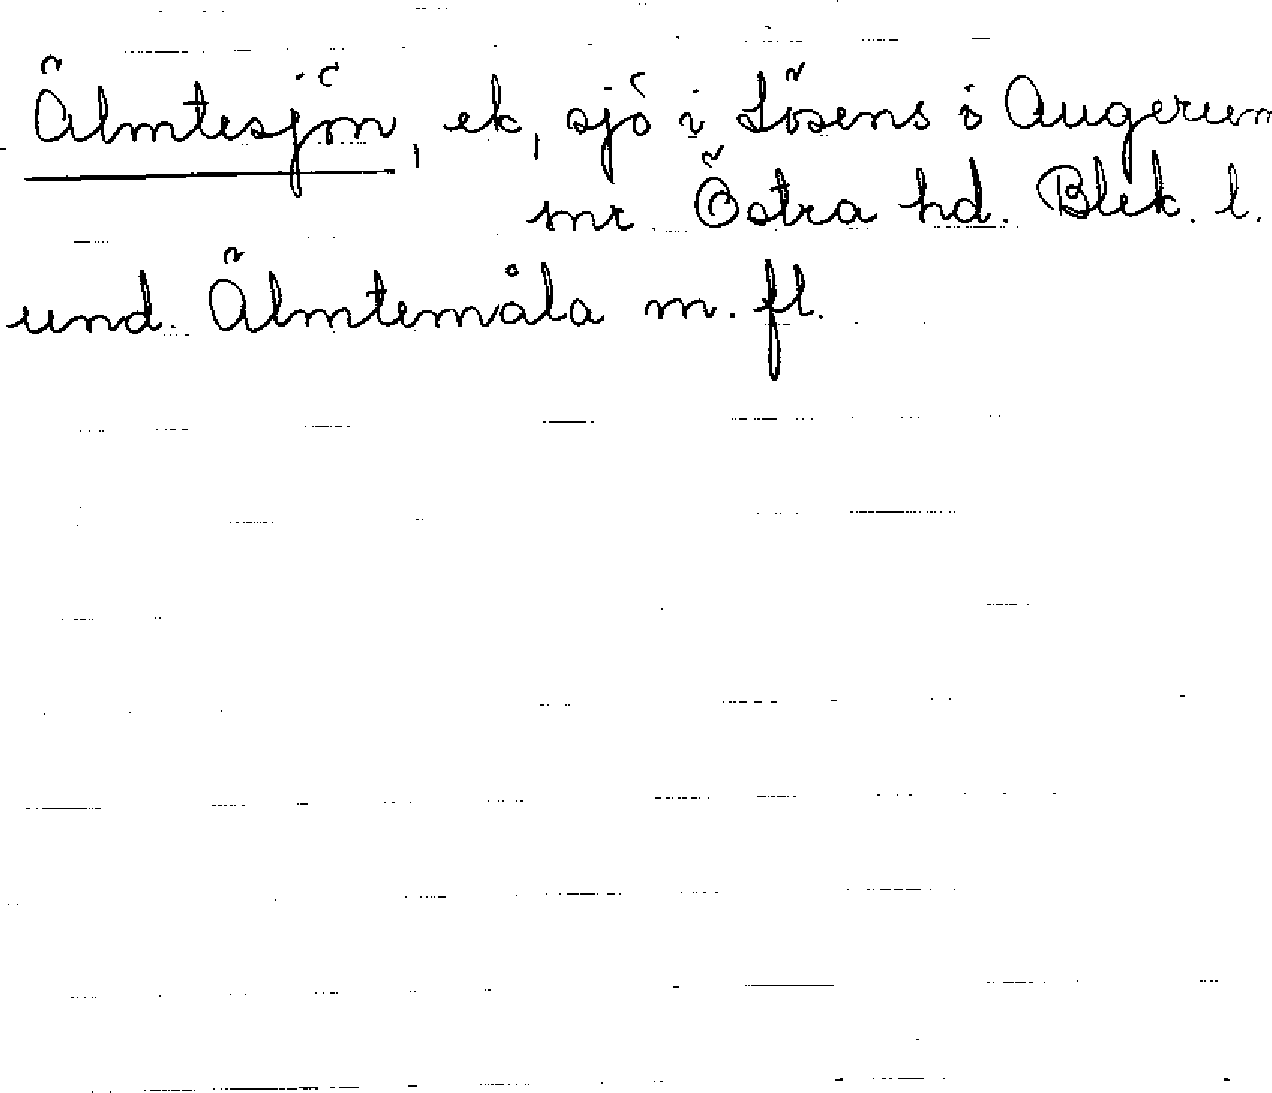 Älmtesjön, ek, sjö i Lösens o Augerum
snr Östra hd. Blek. l.
und. Älmtemåla m. fl.